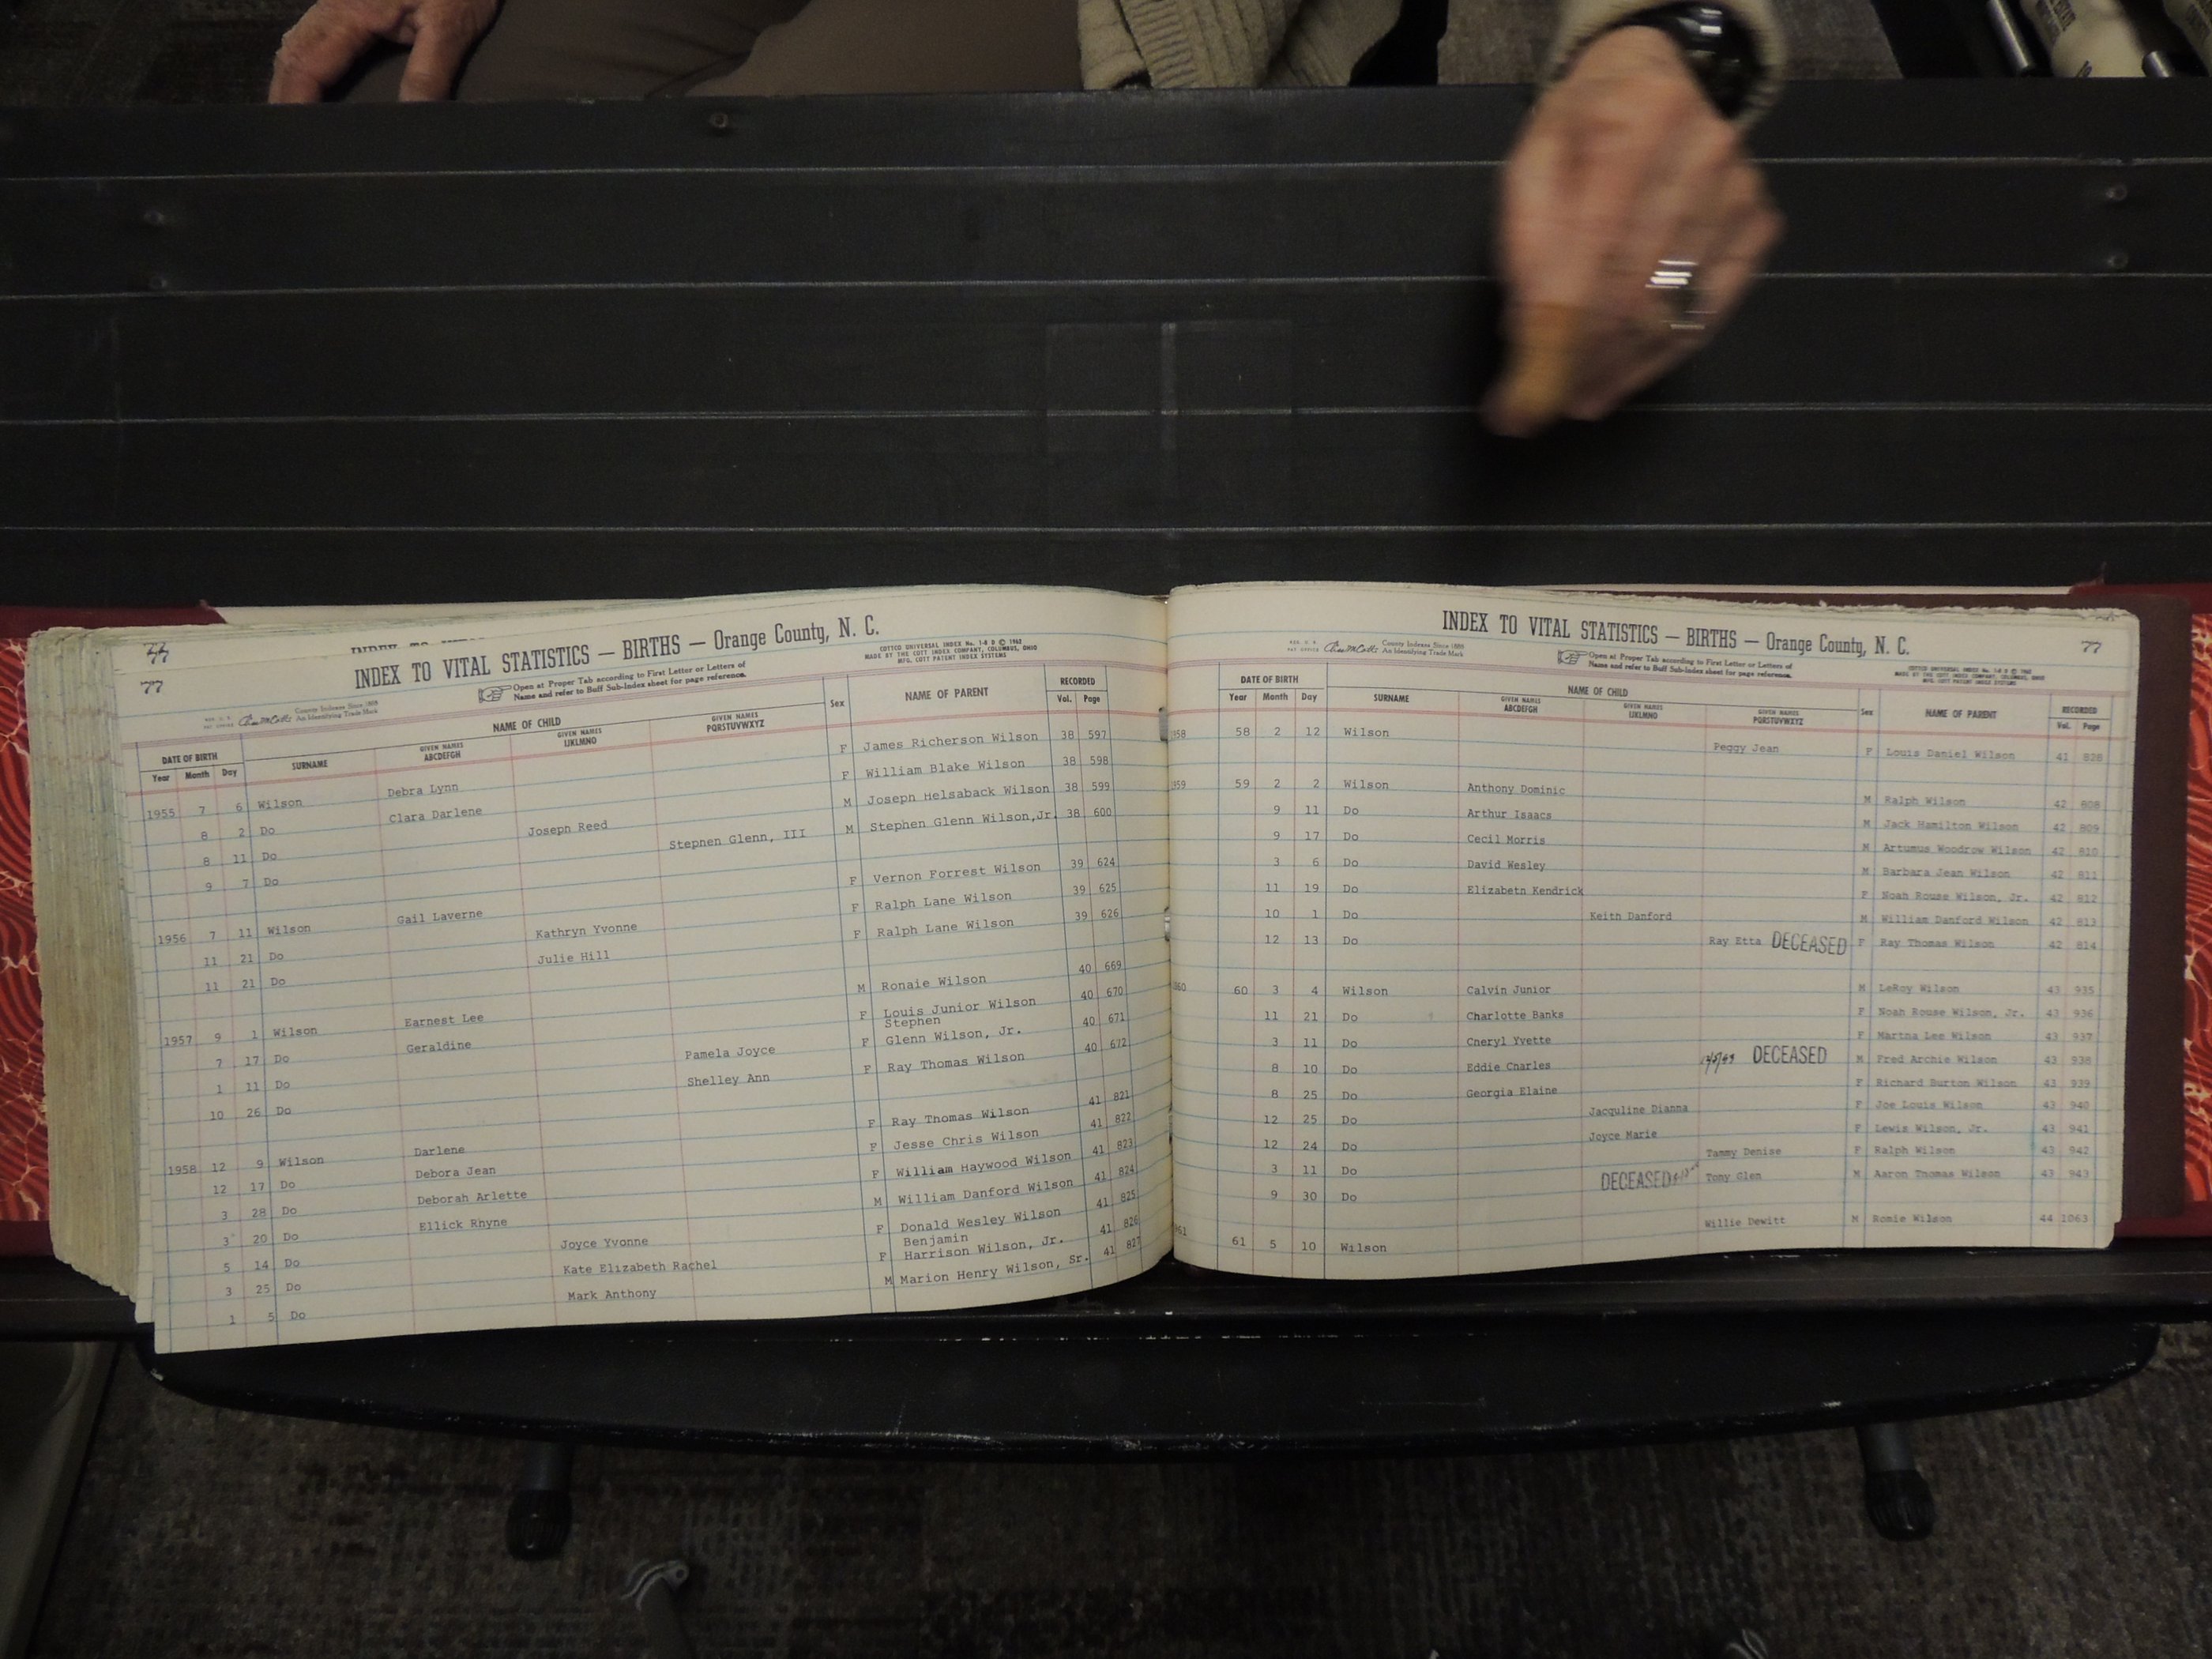 77
INDEX TO VITAL STATISTICS — BIRTHS — Orange County, N. C.
COTTCO UNIVERSAL INDEX No. 1-8 D © 1962
MADE BY THE COTT INDEX COMPANY, COLUMBUS, OHIO
MFG. COTT PATENT INDEX SYSTEMS
77
Open at Proper Tab according to First Letter or Letters of
Name and refer to Buff Sub-Index sheet for page reference.
County Indexes Since 1888
An Identifying Trade Mark
DATE OF BIRTH NAME OF CHILD Sex NAME OF PARENT RECORDED
Year Month Day SURNAME GIVEN NAMES ABCDEFGH GIVEN NAMES IJKLMNO GIVEN NAMES PQRSTUVWXYZ Vol. Page
1955 7 6 Wilson Debra Lynn F James Richerson Wilson 38 597
8 2 Do Clara Darlene F William Blake Wilson 38 598
8 11 Do Joseph Reed M Joseph Helsaback Wilson 38 599
9 7 Do Stephen Glenn, III M Stephen Glenn Wilson,Jr. 38 600
1956 7 11 Wilson Gail Laverne F Vernon Forrest Wilson 39 624
11 21 Do Kathryn Yvonne F Ralph Lane Wilson 39 625
11 21 Do Julie Hill F Ralph Lane Wilson 39 626
1957 9 1 Wilson Earnest Lee M Ronaie Wilson 40 669
7 17 Do Geraldine F Louis Junior Wilson 40 670
1 11 Do Pamela Joyce F Stephen Glenn Wilson, Jr. 40 671
10 26 Do Shelley Ann F Ray Thomas Wilson 40 672
1958 12 9 Wilson Darlene F Ray Thomas Wilson 41 821
12 17 Do Debora Jean F Jesse Chris Wilson 41 822
3 28 Do Deborah Arlette F William Haywood Wilson 41 823
3 20 Do Ellick Rhyne M William Danford Wilson 41 824
5 14 Do Joyce Yvonne F Donald Wesley Wilson 41 825
3 25 Do Kate Elizabeth Rachel F Benjamin Harrison Wilson, Jr. 41 826
1 5 Do Mark Anthony M Marion Henry Wilson, Sr. 41 827
INDEX TO VITAL STATISTICS — BIRTHS — Orange County, N. C.
77
County Indexes Since 1888
An Identifying Trade Mark
Open at Proper Tab according to First Letter or Letters of
Name and refer to Buff Sub-Index sheet for page reference.
COTTCO UNIVERSAL INDEX No. 1-8 D © 1962
MADE BY THE COTT INDEX COMPANY, COLUMBUS, OHIO
MFG. COTT PATENT INDEX SYSTEMS
DATE OF BIRTH NAME OF CHILD Sex NAME OF PARENT RECORDED
Year Month Day SURNAME GIVEN NAMES ABCDEFGH GIVEN NAMES IJKLMNO GIVEN NAMES PQRSTUVWXYZ Vol. Page
58 2 12 Wilson Peggy Jean F Louis Daniel Wilson 41 828
59 2 2 Wilson Anthony Dominic M Ralph Wilson 42 808
9 11 Do Arthur Isaacs M Jack Hamilton Wilson 42 809
9 17 Do Cecil Morris M Artumus Woodrow Wilson 42 810
3 6 Do David Wesley M Barbara Jean Wilson 42 811
11 19 Do Elizabeth Kendrick F Noah Rouse Wilson, Jr. 42 812
10 1 Do Keith Danford M William Danford Wilson 42 813
12 13 Do Ray Etta DECEASED F Ray Thomas Wilson 42 814
60 3 4 Wilson Calvin Junior M LeRoy Wilson 43 935
11 21 Do Charlotte Banks F Noah Rouse Wilson, Jr. 43 936
3 11 Do Cheryl Yvette F Martha Lee Wilson 43 937
8 10 Do Eddie Charles DECEASED M Fred Archie Wilson 43 938
8 25 Do Georgia Elaine F Richard Burton Wilson 43 939
12 25 Do Jacquline Dianna F Joe Louis Wilson 43 940
12 24 Do Joyce Marie F Lewis Wilson, Jr. 43 941
3 11 Do Tammy Denise F Ralph Wilson 43 942
9 30 Do DECEASED Tony Glen M Aaron Thomas Wilson 43 943
61 5 10 Wilson Willie Dewitt M Romie Wilson 44 1063